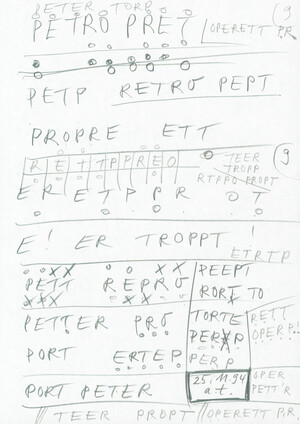 PETER TORP
PETRO PRET
OPERETT P.R.
9
PETP RETRO PEPT
PROPRE ETT
R E T T P P R E O
TEER
TROPP
RTPPO PROPT
9
E R E T P P R O T
E! ER TROPPT!
ETRTP
PETT REPRO
PEEPT
RORT TO
PETTER PRO
TORTE
PER P
RETT
OPER P.
PORT ERTEP
PER P
PORT PETER
25.11.94
a.t.
OPER
PETT'R
TEER PROPT
OPERETT P.R.